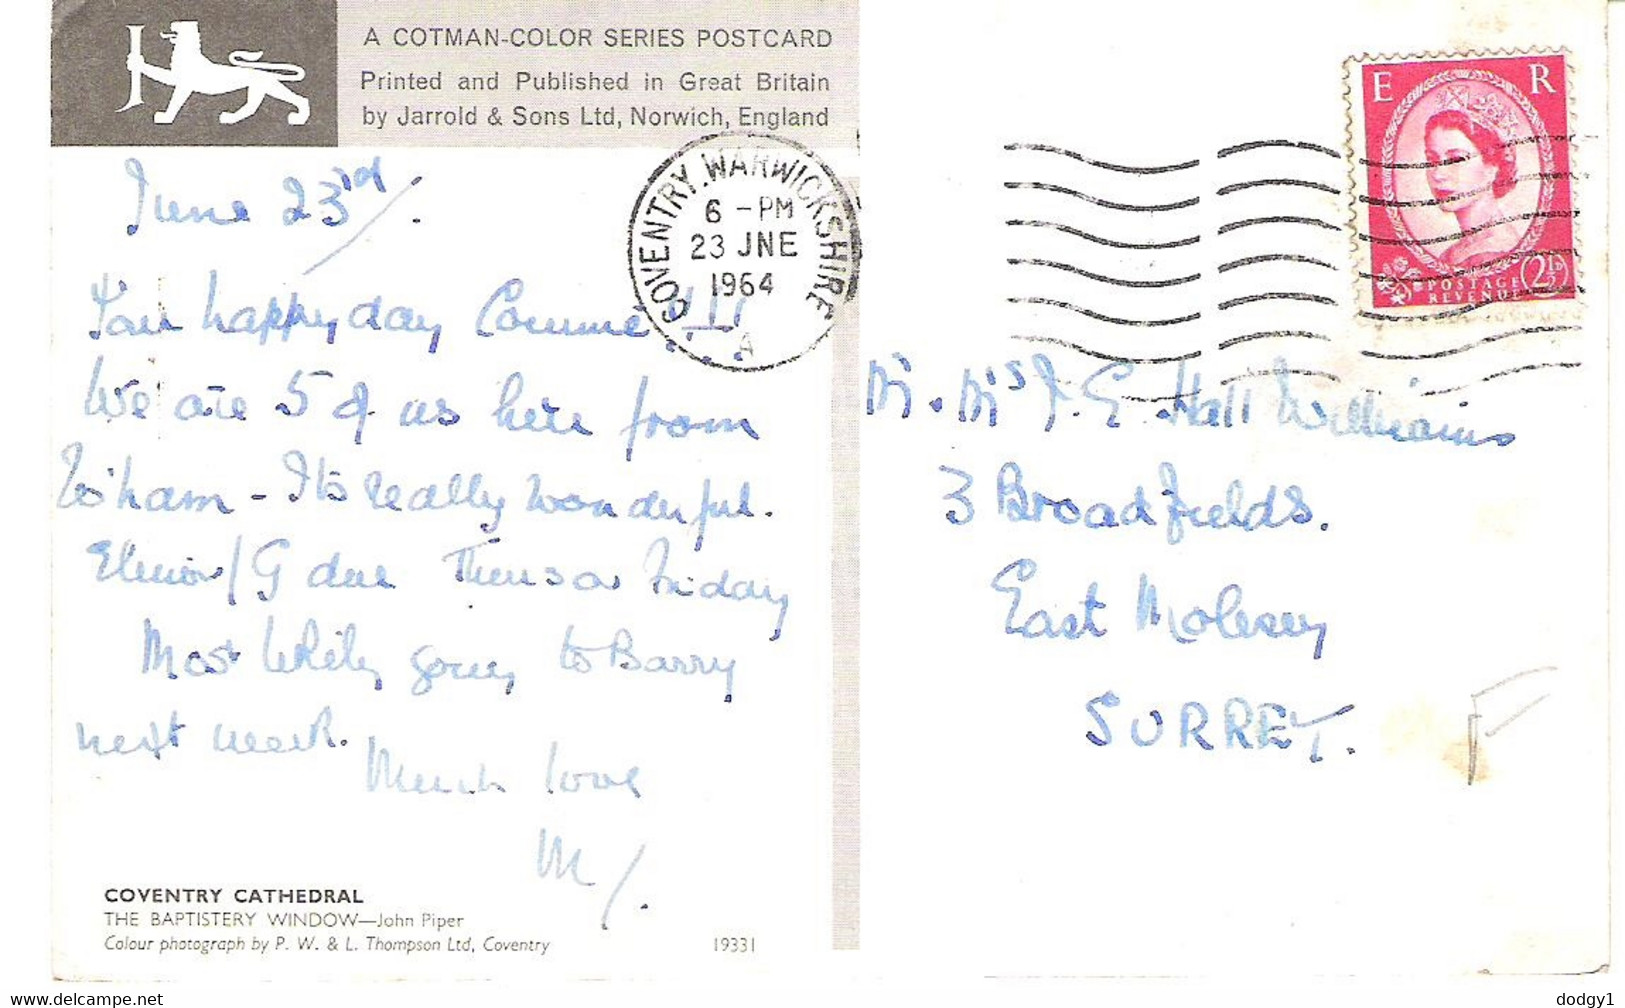 A COTMAN-COLOR SERIES POSTCARD
Printed and Published in Great Britain
by Jarrold & Sons Ltd, Norwich, England
June 23rd/.
Your happy day Connie !!!
We are 5 of us here from
W'ham - Its really wonderful.
Elinor/G due Thurs or Friday
Most likely going to Barry
next week.
Much love
M/.
COVENTRY CATHEDRAL
THE BAPTISTERY WINDOW—John Piper
Colour photograph by P. W. & L. Thompson Ltd, Coventry 19331
COVENTRY. WARWICKSHIRE
6 - PM
23 JNE
1964
A
E R
POSTAGE
REVENUE
2½D
Mr. Mrs J. E. Hall Williams
3 Broadfields.
East Molesey
SURREY.
F
www.delcampe.net
dodgy1